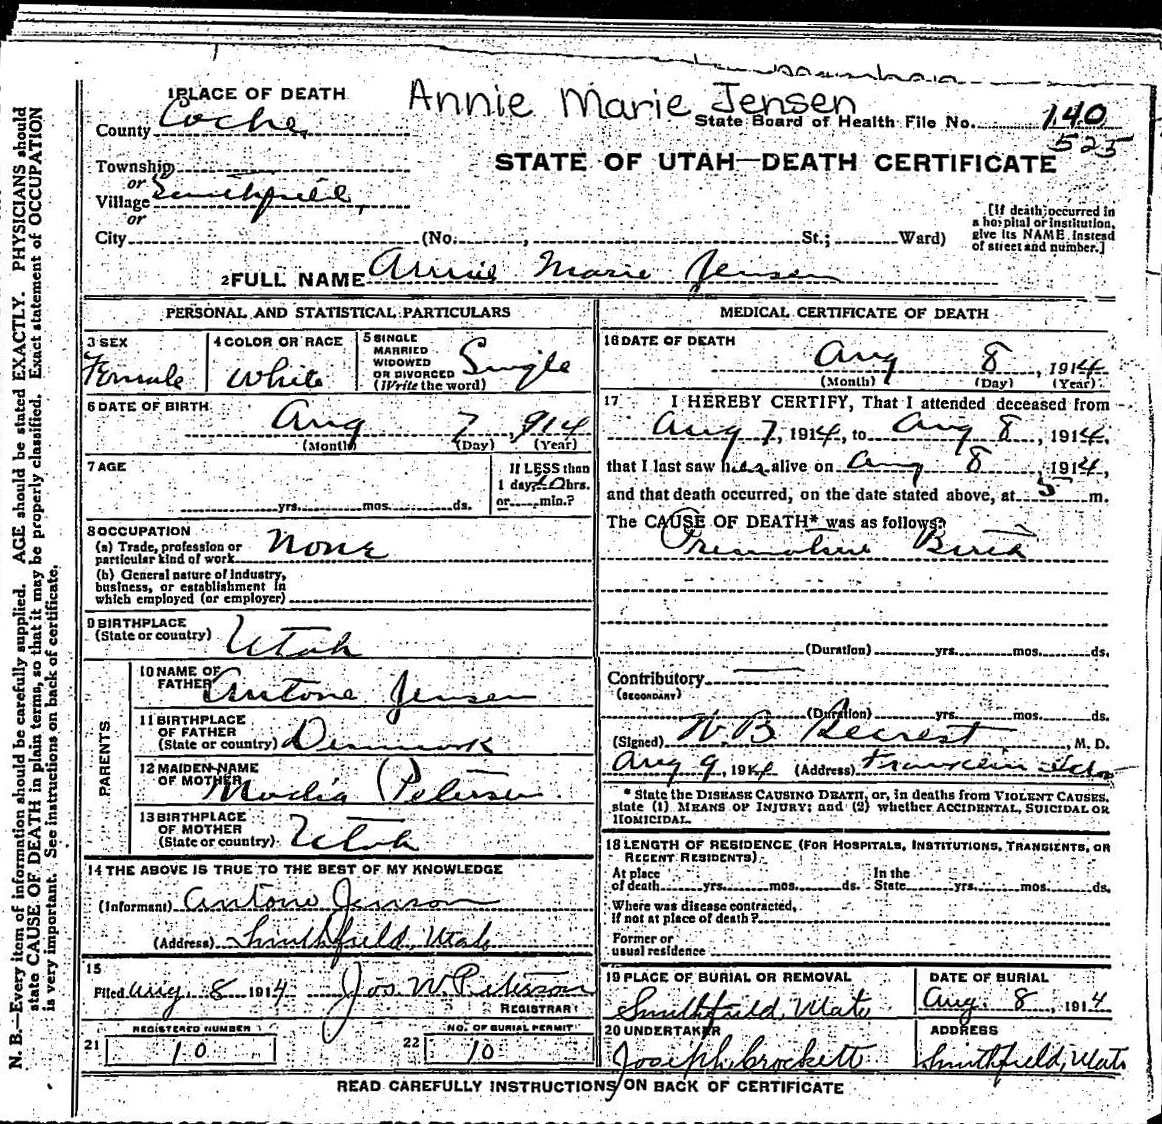 1 PLACE OF DEATH
Annie Marie Jensen
County Cache
State Board of Health File No. 140
525
Township
STATE OF UTAH—DEATH CERTIFICATE
or
Village Smithfield,
or
[If death occurred in a hospital or institution, give its NAME, instead of street and number.]
City (No. , St.; Ward)
2 FULL NAME Annie Marie Jensen
PERSONAL AND STATISTICAL PARTICULARS
3 SEX Female
4 COLOR OR RACE White
5 SINGLE MARRIED WIDOWED OR DIVORCED (Write the word) Single
6 DATE OF BIRTH Aug 7, 914
(Month) (Day) (Year)
7 AGE
yrs. mos. ds.
If LESS than
1 day, hrs.
or min.?
8 OCCUPATION
(a) Trade, profession or
particular kind of work None
(b) General nature of industry,
business, or establishment in
which employed (or employer)
9 BIRTHPLACE
(State or country) Utah
PARENTS
10 NAME OF
FATHER Antone Jensen
11 BIRTHPLACE
OF FATHER
(State or country) Denmark
12 MAIDEN NAME
OF MOTHER Petersen
13 BIRTHPLACE
OF MOTHER
(State or country) Utah
14 THE ABOVE IS TRUE TO THE BEST OF MY KNOWLEDGE
(Informant) Antone Jenson
(Address) Smithfield, Utah
15
Filed Aug. 8 1914 Jos. W. Peterson
REGISTRAR
REGISTERED NUMBER
21 10
NO. OF BURIAL PERMIT
22 10
MEDICAL CERTIFICATE OF DEATH
16 DATE OF DEATH
Aug 8, 1914
(Month) (Day) (Year)
17 I HEREBY CERTIFY, That I attended deceased from
Aug 7, 1914, to Aug 8, 1914,
that I last saw her alive on Aug 8, 1914,
and that death occurred, on the date stated above, at 5 m.
The CAUSE OF DEATH* was as follows:
Premature Birth
(Duration) yrs. mos. ds.
Contributory
(SECONDARY)
(Duration) yrs. mos. ds.
(Signed) W. B. Secrest, M. D.
Aug 9, 1914 (Address) Franklin Idaho
* State the DISEASE CAUSING DEATH, or, in deaths from VIOLENT CAUSES,
state (1) MEANS OF INJURY; and (2) whether ACCIDENTAL, SUICIDAL OR
HOMICIDAL.
18 LENGTH OF RESIDENCE (FOR HOSPITALS, INSTITUTIONS, TRANSIENTS, OR
RECENT RESIDENTS).
At place In the
of death yrs. mos. ds. State yrs. mos. ds.
Where was disease contracted,
if not at place of death?
Former or
usual residence
19 PLACE OF BURIAL OR REMOVAL
Smithfield, Utah
DATE OF BURIAL
Aug. 8, 1914
20 UNDERTAKER
Joseph Crockett
ADDRESS
Smithfield, Utah
READ CAREFULLY INSTRUCTIONS ON BACK OF CERTIFICATE
N. B.—Every item of information should be carefully supplied. AGE should be stated EXACTLY. PHYSICIANS should
state CAUSE OF DEATH in plain terms, so that it may be properly classified. Exact statement of OCCUPATION
is very important. See instructions on back of certificate.